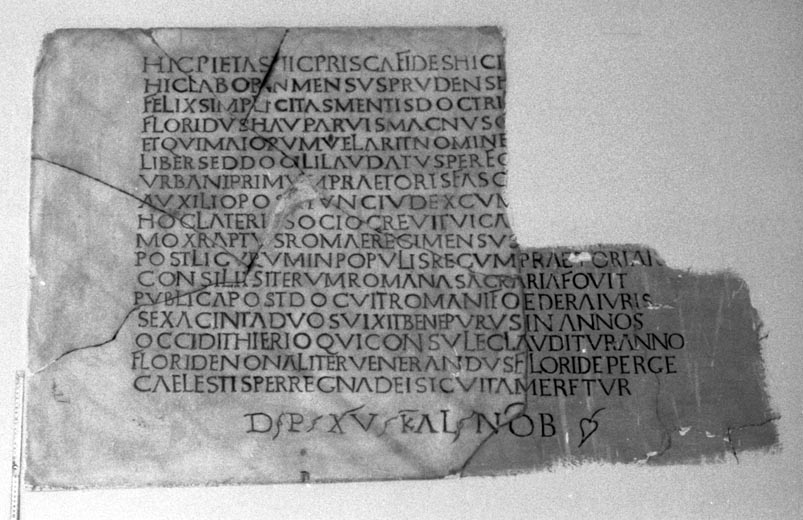 HIC PIETAS HIC PRISCA FIDES HIC
HIC LABOR INMENSUS PRUDENS
FELIX SIMPLICITAS MENTIS DOCTRI
FLORIDUS HAU PARVIS MAGNUS
ET QVI MAIORUM VELARIT NOMINE
LIBER SED DOCILI LAUDATUS PERE
URBANI PRIMUM PRAETORIS FASC
AUXILIO POST UNC IUDEX CUM
HOC LATERI SOCIO CREVIT
MOX RAPTUS ROMAE REGIMEN SUS
POST LIGVRUM IN POPULIS RECUM PRAETORIA
CONSILIIS ITERUM ROMANA SACRARIA FOVIT
PUBLICA POST DOCVIT ROMANI FOEDERA IURIS
SEXACINTA DUOS VIXIT BENE PURUS IN ANNOS
OCCIDIT HIERIO QUI CONSULE CLAUDITUR ANNO
FLORIDE NON ALITER VENERANDUS FLORIDE PERGE
CAELESTIS PER REGNA DEI SIC VITA MERETUR
D P XV KAL NOB